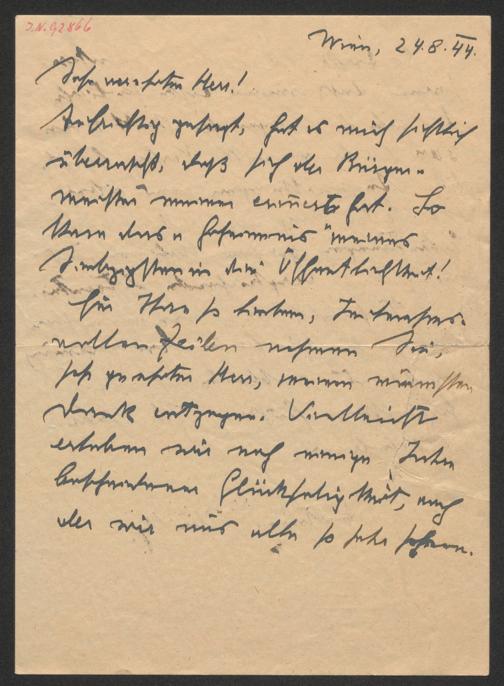 I.N. 92866
Wien, 24.8.44.
Sehr verehrter Herr!
Aufrichtig gesagt, hat es mich sichtlich
überrascht, daß sich der Bürger-
meister meiner erinnert hat. So
kam das "Geheimnis" meines
Siebzigsten in die Öffentlichkeit!
Für Ihre so lieben,
vollen Zeilen nehmen Sie,
sehr geehrter Herr, meinen wärmsten
Dank entgegen. Vielleicht
erleben wir noch einige Jahre
bescheidener Glückseligkeit, nach
der wir uns alle so sehr sehnen.